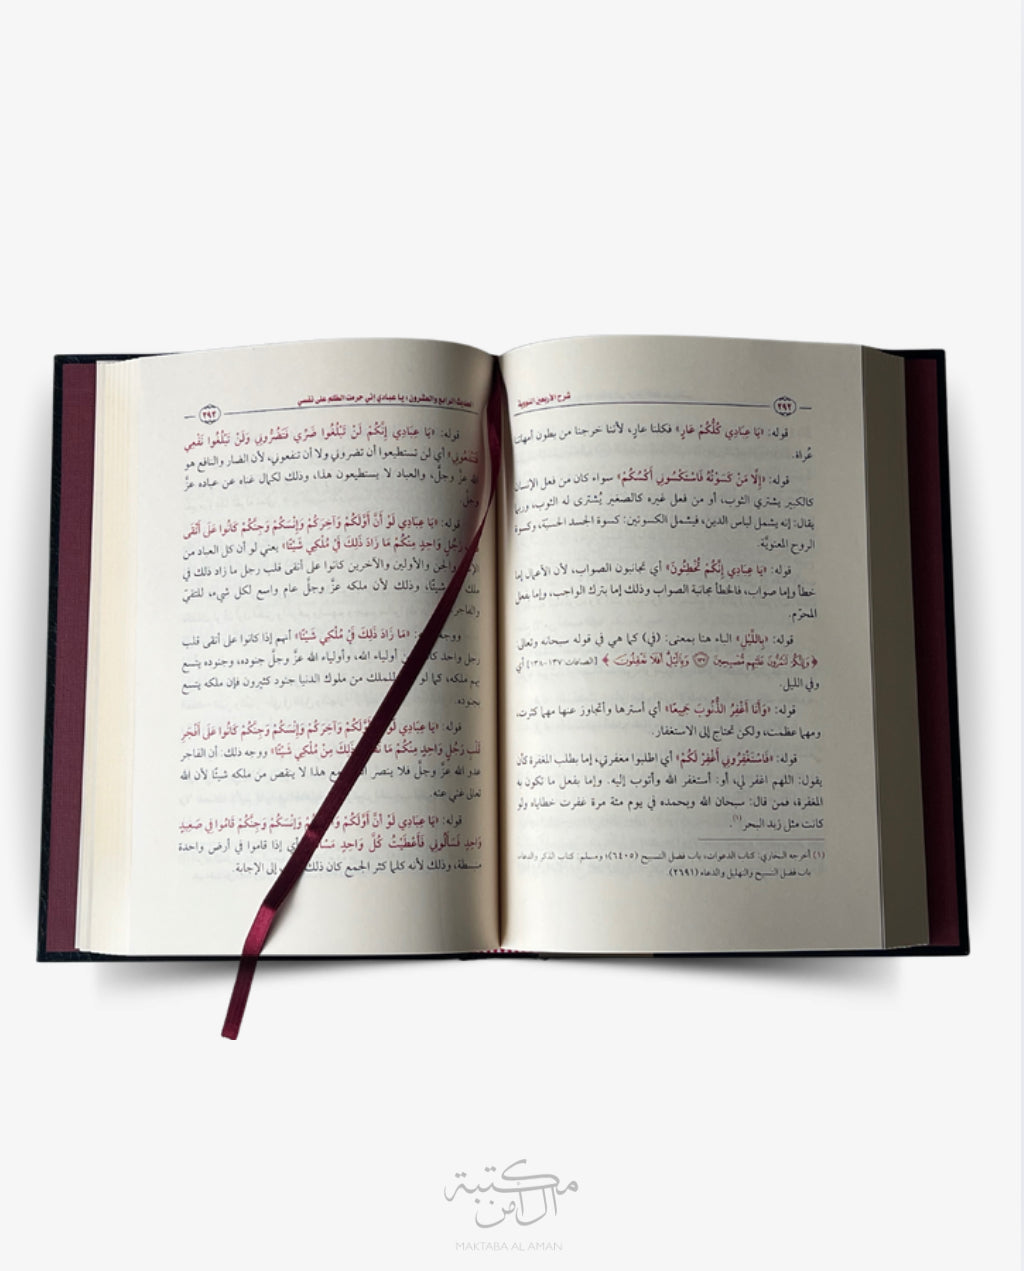 شرح الأربعين النووية
٢٩٢
قوله: «يَا عِبَادِي كُلُّكُمْ عَارٍ» فكلنا عارٍ، لأننا خرجنا من بطون أمهاتنا
عُراة.
قوله: «إِلَّا مَنْ كَسَوْتُهُ فَاسْتَكْسُونِي أَكْسُكُمْ» سواء كان من فعل الإنسان
كالكبير يشتري الثوب، أو من فعل غيره كالصغير يُشترى له الثوب، وربما
يقال: إنه يشمل لباس الدين، فيشمل الكسوتين: كسوة الجسد الحسيّة، وكسوة
الروح المعنويَّة.
قوله: «يَا عِبَادِي إِنَّكُمْ تُخْطِئُونَ» أي تجانبون الصواب، لأن الأعمال إما
خطأ وإما صواب، فالخطأ مجانبة الصواب وذلك إما بترك الواجب، وإما بفعل
المحرّم.
قوله: «بِاللَّيْلِ» الباء هنا بمعنى: (في) كما هي في قوله سبحانه وتعالى
﴿وَإِنَّكُمْ لَتَمُرُّونَ عَلَيْهِم مُّصْبِحِينَ ١٣٧ وَبِاللَّيْلِ أَفَلَا تَعْقِلُونَ﴾ [الصافات: ١٣٧-١٣٨] أي
وفي الليل.
قوله: «وَأَنَا أَغْفِرُ الذُّنُوبَ جَمِيعًا» أي أسترها وأتجاوز عنها مهما كثرت،
ومهما عظمت، ولكن تحتاج إلى الاستغفار.
قوله: «فَاسْتَغْفِرُونِي أَغْفِرْ لَكُمْ» أي اطلبوا مغفرتي، إما بطلب المغفرة كأن
يقول: اللهم اغفر لي، أو: أستغفر الله وأتوب إليه. وإما بفعل ما تكون به
المغفرة، فمن قال: سبحان الله وبحمده في يوم مئة مرة غفرت خطاياه ولو
كانت مثل زبد البحر(١).
(١) أخرجه البخاري: كتاب الدعوات، باب فضل التسبيح (٦٤٠٥)؛ ومسلم: كتاب الذكر والدعاء
باب فضل التسبيح والتهليل والدعاء (٢٦٩١)
الحديث الرابع والعشرون: يا عبادي إني حرمت الظلم على نفسي
٢٩٣
قوله: «يَا عِبَادِي إِنَّكُمْ لَنْ تَبْلُغُوا ضَرِّي فَتَضُرُّونِي وَلَنْ تَبْلُغُوا نَفْعِي
فَتَنْفَعُونِي» أي لن تستطيعوا أن تضروني ولا أن تنفعوني، لأن الضار والنافع هو
الله عزَّ وجلَّ، والعباد لا يستطيعون هذا، وذلك لكمال غناه عن عباده عزَّ
وجلَّ
قوله: «يَا عِبَادِي لَوْ أَنَّ أَوَّلَكُمْ وَآخِرَكُمْ وَإِنْسَكُمْ وَجِنَّكُمْ كَانُوا عَلَى أَتْقَى
رَجُلٍ وَاحِدٍ مِنْكُمْ مَا زَادَ ذَلِكَ فِيْ مُلْكِي شَيْئًا» يعني لو أن كل العباد من
والجن والأولين والآخرين كانوا على أتقى قلب رجل ما زاد ذلك في
شيئًا، وذلك لأن ملكه عزَّ وجلَّ عام واسع لكل شيء، للتقيّ
والفاجر
ووجه «مَا زَادَ ذَلِكَ فِيْ مُلْكِي شَيْئًا» أنهم إذا كانوا على أتقى قلب
رجل واحد من أولياء الله، وأولياء الله عزَّ وجلَّ جنوده، وجنوده يتسع
بهم ملكه، كما لو للملك من ملوك الدنيا جنود كثيرون فإن ملكه يتسع
بجنوده.
قوله: «يَا عِبَادِي لَوْ أَوَّلَكُمْ وَآخِرَكُمْ وَإِنْسَكُمْ وَجِنَّكُمْ كَانُوا عَلَى أَفْجَرِ
قَلْبِ رَجُلٍ وَاحِدٍ مِنْكُمْ مَا ذَلِكَ مِنْ مُلْكِي شَيْئًا» ووجه ذلك: أن الفاجر
عدو الله عزَّ وجلَّ فلا ينصر هذا لا ينقص من ملكه شيئًا لأن الله
تعالى غني عنه.
قوله: «يَا عِبَادِي لَوْ أَنَّ أَوَّلَكُمْ وَإِنْسَكُمْ وَجِنَّكُمْ قَامُوا فِي صَعِيدٍ
وَاحِدٍ فَسَأَلُونِي فَأَعْطَيْتُ كُلَّ وَاحِدٍ أي إذا قاموا في أرض واحدة
منبسطة، وذلك لأنه كلما كثر الجمع كان ذلك إلى الإجابة.
مكتبة
الأمان
MAKTABA AL AMAN